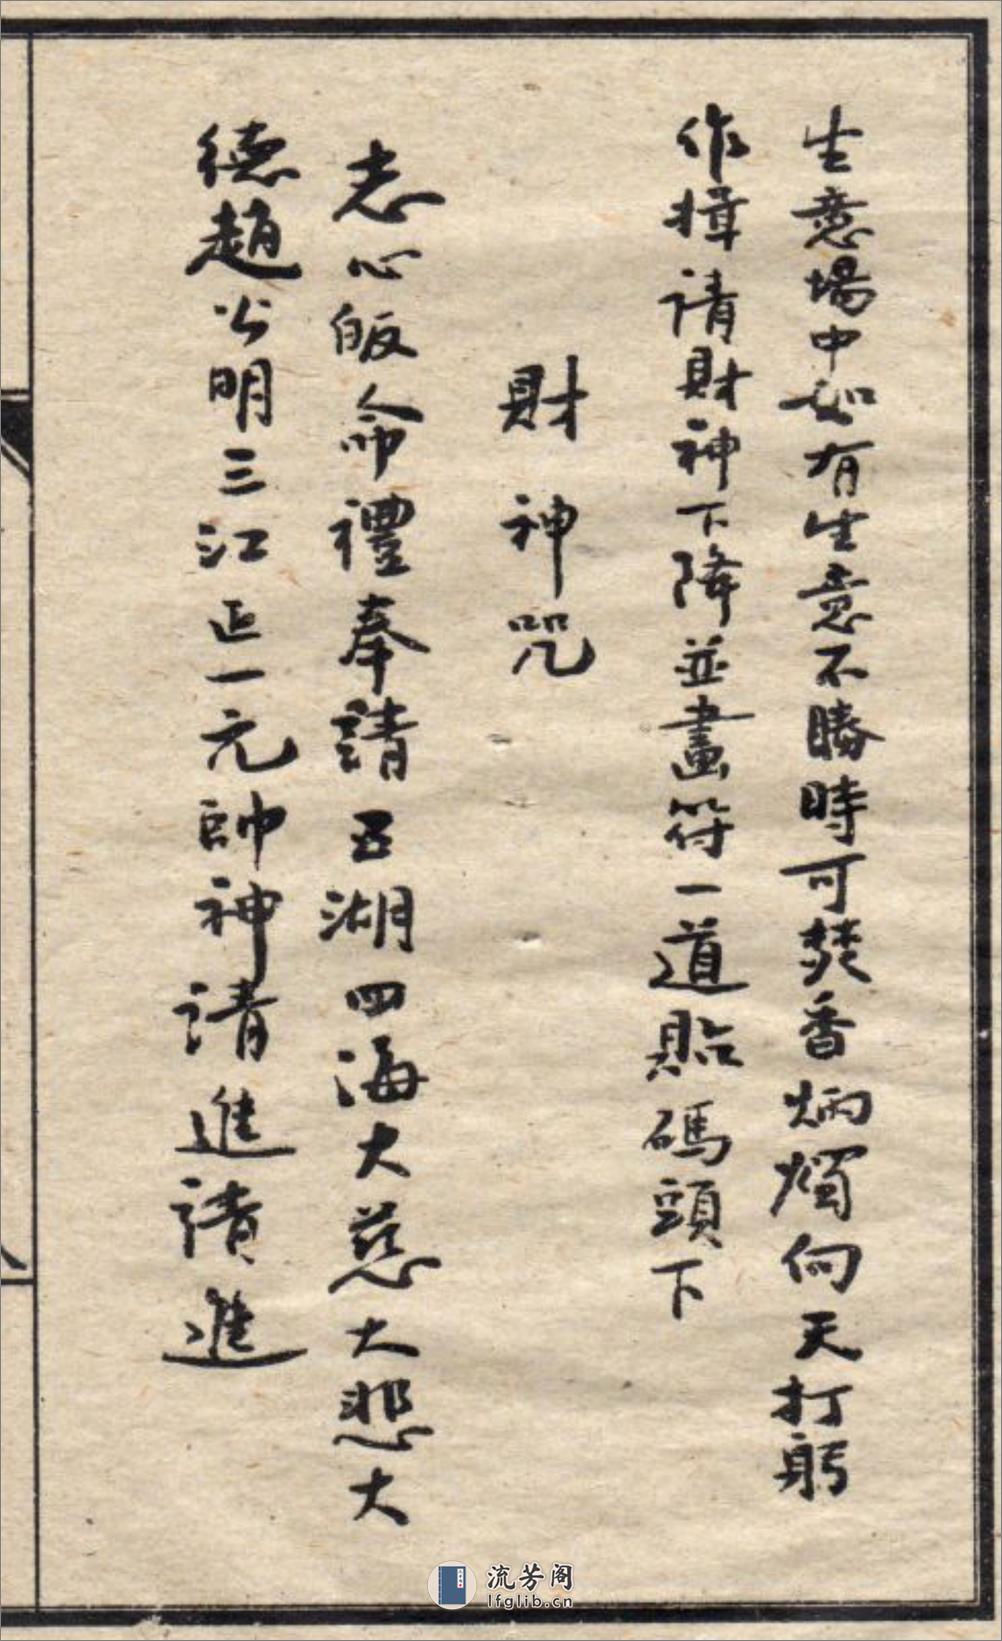 生意場中如有生意不勝時可焚香炳燭向天打躬
作揖請財神下降並畫符一道貼碼頭下
財神咒
志心皈命禮奉請五湖四海大慈大悲大
德趙公明三江正一元帥神請進請進
流芳阁
lfglib.cn